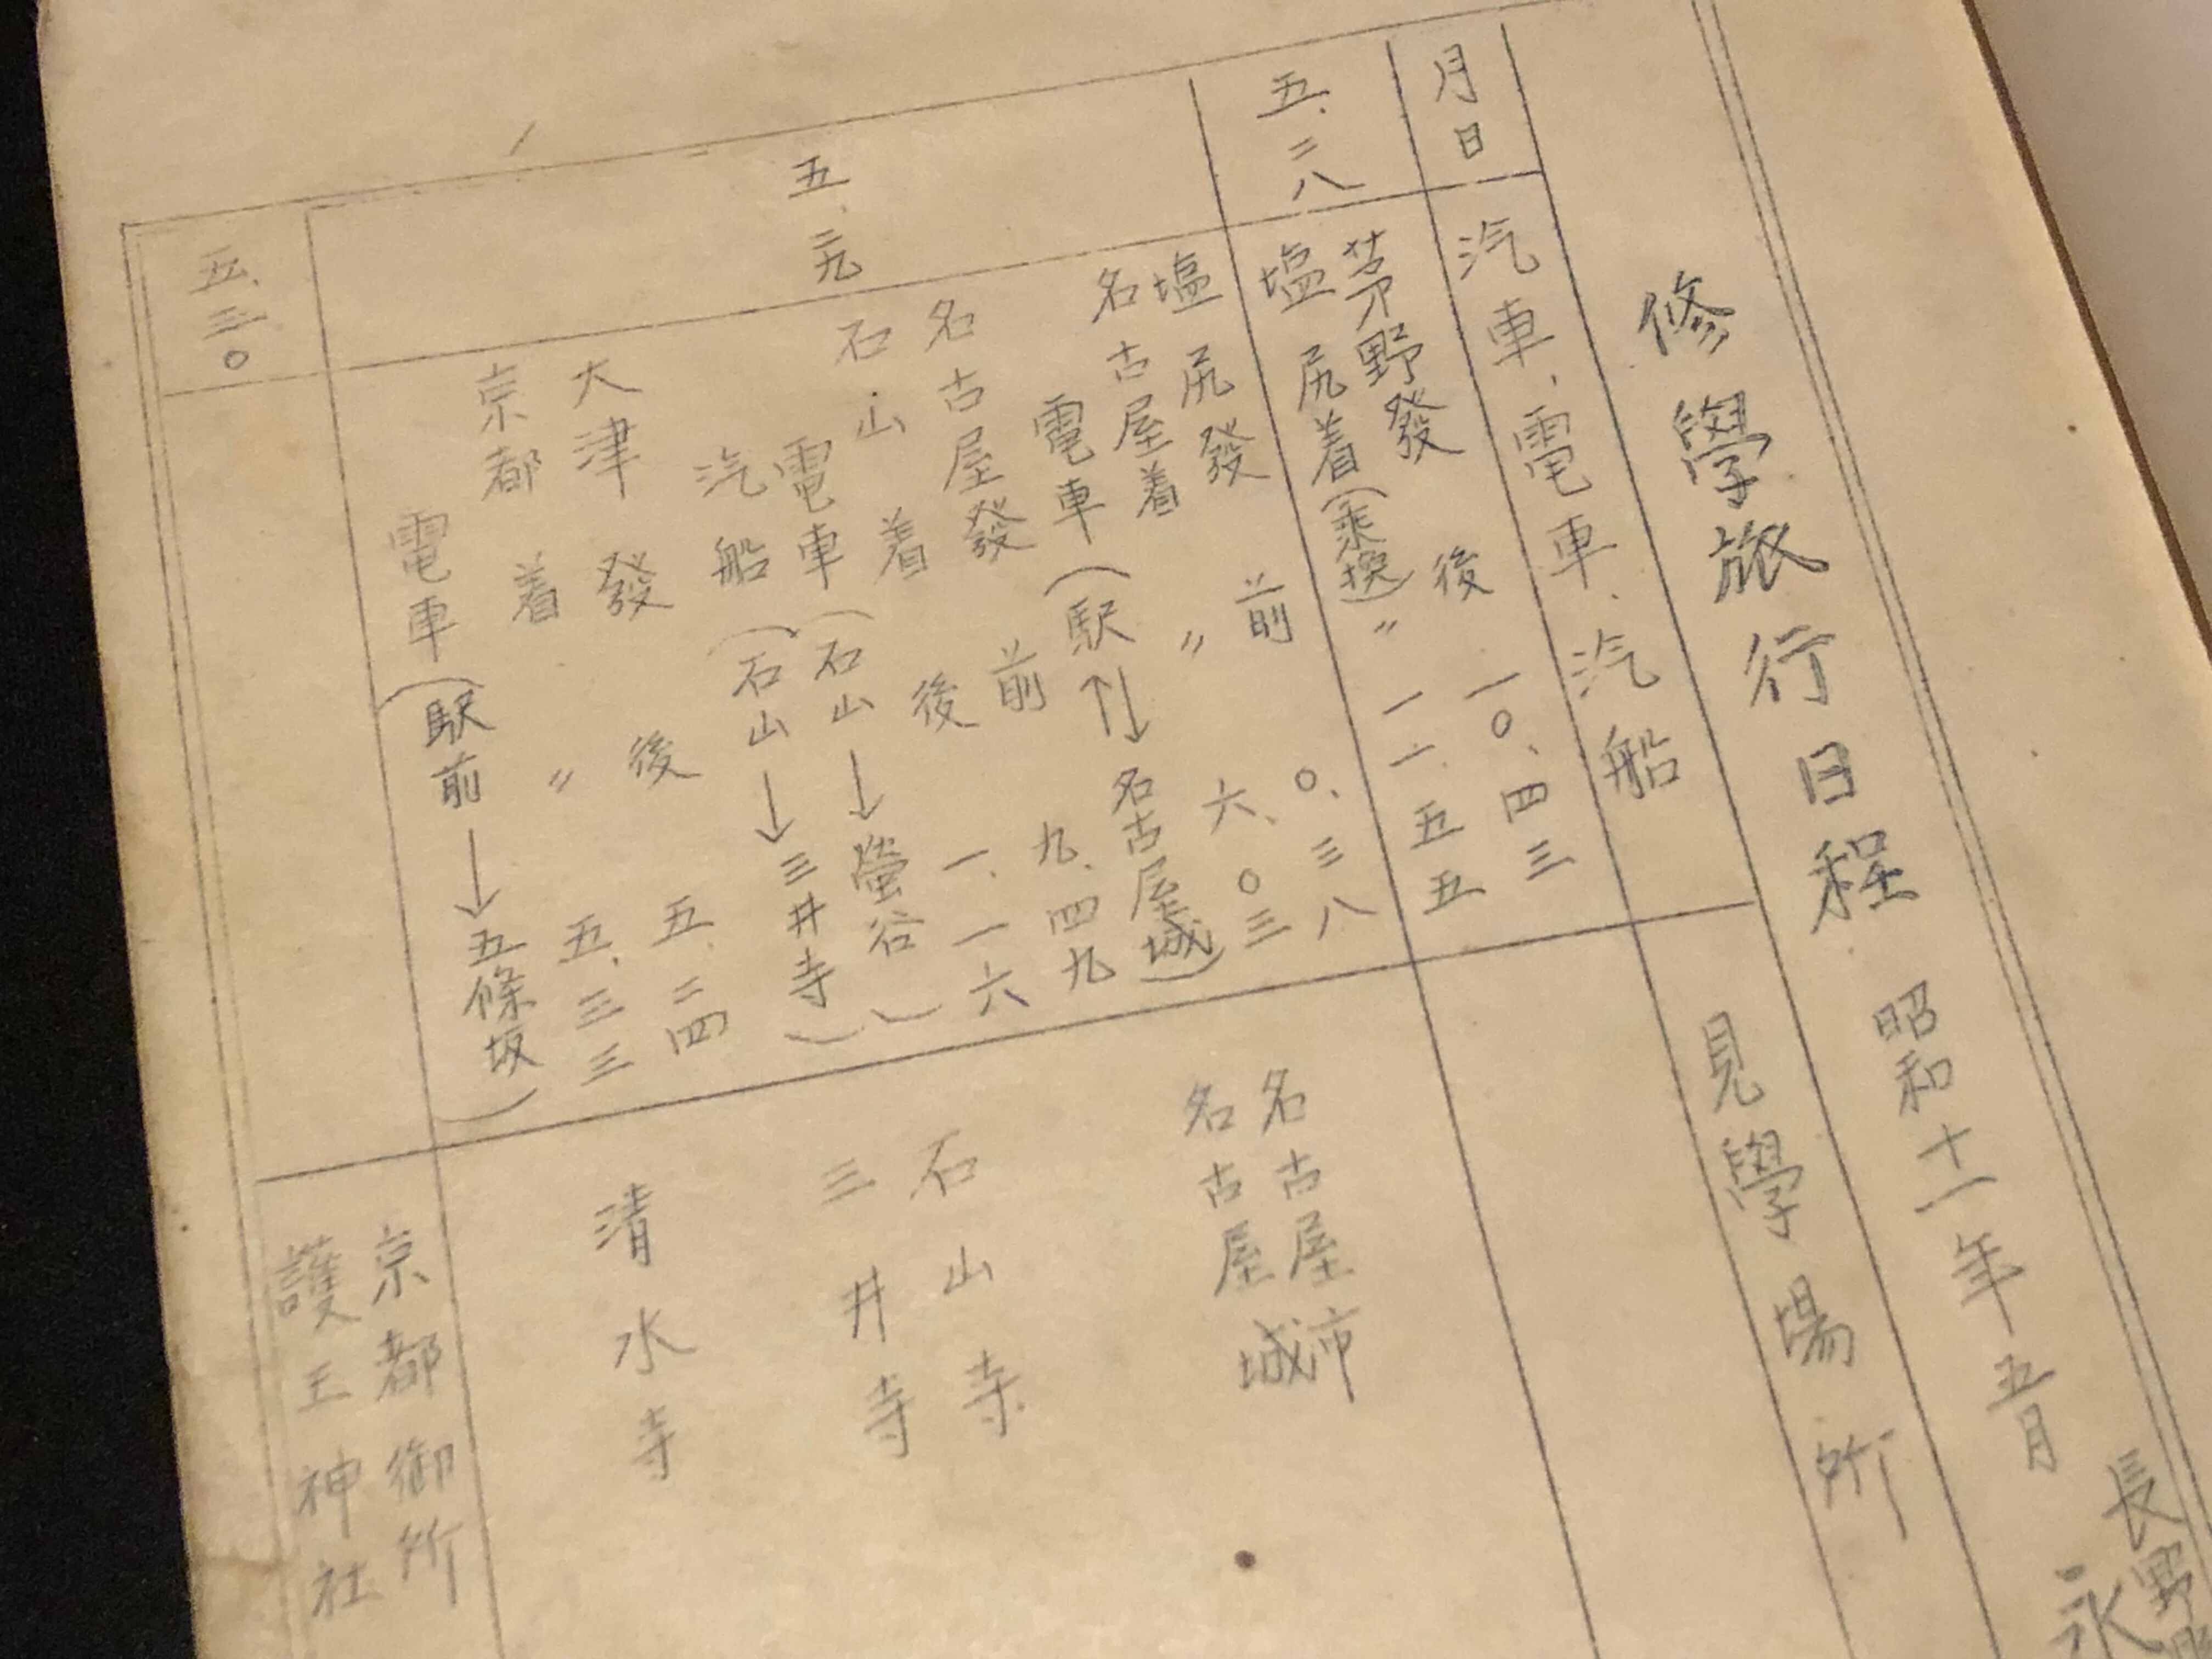 修學旅行日程 昭和十一年五月
長野
永
月日
汽車、電車、汽船
見學場所
五、二八
茅野發 後 一〇、四三
塩尻着(乘換)〃 一一、五五
五、二九
塩尻發 前 〇、三八
名古屋着 〃 六、〇三
電車(駅⇅名古屋城)
名古屋發 前 九、四九
石山着 後 一、一六
電車(石山→螢谷)
汽船(石山→三井寺)
大津發 後 五、二四
京都着 〃 五、三三
電車(駅前→五條坂)
名古屋市
名古屋城
石山寺
三井寺
清水寺
五、三〇
京都御所
護王神社